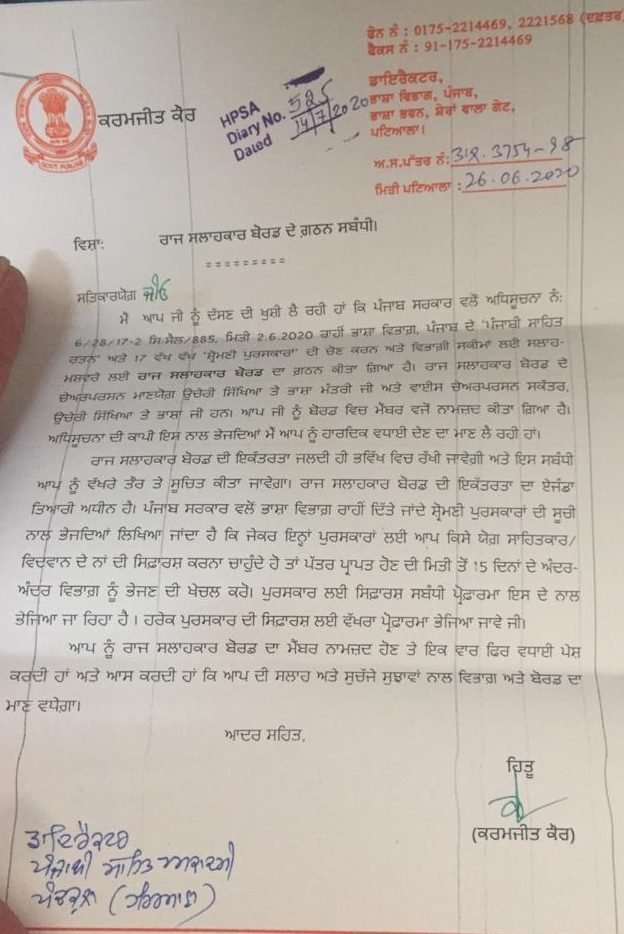 ਫੋਨ ਨੰ : 0175-2214469, 2221568 (ਦਫ਼ਤਰ
ਫੈਕਸ ਨੰ : 91-175-2214469
ਕਰਮਜੀਤ ਕੌਰ
HPSA
Diary No. 525
Dated 14/7/2020
ਡਾਇਰੈਕਟਰ,
ਭਾਸ਼ਾ ਵਿਭਾਗ, ਪੰਜਾਬ,
ਭਾਸ਼ਾ ਭਵਨ, ਸ਼ੇਰਾਂ ਵਾਲਾ ਗੇਟ,
ਪਟਿਆਲਾ।
ਅ.ਸ.ਪੱਤਰ ਨੰ:
ਮਿਤੀ ਪਟਿਆਲਾ : 26.06.2020
GOVT. PUNJAB
ਵਿਸ਼ਾ: ਰਾਜ ਸਲਾਹਕਾਰ ਬੋਰਡ ਦੇ ਗਠਨ ਸਬੰਧੀ।
=========
ਸਤਿਕਾਰਯੋਗ ਜੀਓ
ਮੈਂ ਆਪ ਜੀ ਨੂੰ ਦੱਸਣ ਦੀ ਖੁਸ਼ੀ ਲੈ ਰਹੀ ਹਾਂ ਕਿ ਪੰਜਾਬ ਸਰਕਾਰ ਵਲੋਂ ਅਧਿਸੂਚਨਾ ਨੰ:
6/28/17-2 ਸਿ.ਸੈਲ/885, ਮਿਤੀ 2.6.2020 ਰਾਹੀਂ ਭਾਸ਼ਾ ਵਿਭਾਗ, ਪੰਜਾਬ ਦੇ 'ਪੰਜਾਬੀ ਸਾਹਿਤ
ਰਤਨ' ਅਤੇ 17 ਵੱਖ ਵੱਖ 'ਸ਼੍ਰੋਮਣੀ ਪੁਰਸਕਾਰਾਂ' ਦੀ ਚੋਣ ਕਰਨ ਅਤੇ ਵਿਭਾਗੀ ਸਕੀਮਾਂ ਲਈ ਸਲਾਹ-
ਮਸ਼ਵਰੇ ਲਈ ਰਾਜ ਸਲਾਹਕਾਰ ਬੋਰਡ ਦਾ ਗਠਨ ਕੀਤਾ ਗਿਆ ਹੈ। ਰਾਜ ਸਲਾਹਕਾਰ ਬੋਰਡ ਦੇ
ਚੇਅਰਪਰਸਨ ਮਾਣਯੋਗ ਉਚੇਰੀ ਸਿੱਖਿਆ ਤੇ ਭਾਸ਼ਾ ਮੰਤਰੀ ਜੀ ਅਤੇ ਵਾਈਸ ਚੇਅਰਪਰਸਨ ਸਕੱਤਰ,
ਉਚੇਰੀ ਸਿੱਖਿਆ ਤੇ ਭਾਸ਼ਾ ਜੀ ਹਨ। ਆਪ ਜੀ ਨੂੰ ਬੋਰਡ ਵਿਚ ਮੈਂਬਰ ਵਜੋਂ ਨਾਮਜ਼ਦ ਕੀਤਾ ਗਿਆ ਹੈ।
ਅਧਿਸੂਚਨਾ ਦੀ ਕਾਪੀ ਇਸ ਨਾਲ ਭੇਜਦਿਆਂ ਮੈਂ ਆਪ ਨੂੰ ਹਾਰਦਿਕ ਵਧਾਈ ਦੇਣ ਦਾ ਮਾਣ ਲੈ ਰਹੀ ਹਾਂ।
ਰਾਜ ਸਲਾਹਕਾਰ ਬੋਰਡ ਦੀ ਇਕੱਤਰਤਾ ਜਲਦੀ ਹੀ ਭਵਿੱਖ ਵਿਚ ਰੱਖੀ ਜਾਵੇਗੀ ਅਤੇ ਇਸ ਸਬੰਧੀ
ਆਪ ਨੂੰ ਵੱਖਰੇ ਤੌਰ ਤੇ ਸੂਚਿਤ ਕੀਤਾ ਜਾਵੇਗਾ। ਰਾਜ ਸਲਾਹਕਾਰ ਬੋਰਡ ਦੀ ਇਕੱਤਰਤਾ ਦਾ ਏਜੰਡਾ
ਤਿਆਰੀ ਅਧੀਨ ਹੈ। ਪੰਜਾਬ ਸਰਕਾਰ ਵਲੋਂ ਭਾਸ਼ਾ ਵਿਭਾਗ ਰਾਹੀਂ ਦਿੱਤੇ ਜਾਂਦੇ ਸ਼੍ਰੋਮਣੀ ਪੁਰਸਕਾਰਾਂ ਦੀ ਸੂਚੀ
ਨਾਲ ਭੇਜਦਿਆਂ ਲਿਖਿਆ ਜਾਂਦਾ ਹੈ ਕਿ ਜੇਕਰ ਇਨ੍ਹਾਂ ਪੁਰਸਕਾਰਾਂ ਲਈ ਆਪ ਕਿਸੇ ਯੋਗ ਸਾਹਿਤਕਾਰ/
ਵਿਦਵਾਨ ਦੇ ਨਾਂ ਦੀ ਸਿਫ਼ਾਰਸ਼ ਕਰਨਾ ਚਾਹੁੰਦੇ ਹੋ ਤਾਂ ਪੱਤਰ ਪ੍ਰਾਪਤ ਹੋਣ ਦੀ ਮਿਤੀ ਤੋਂ 15 ਦਿਨਾਂ ਦੇ ਅੰਦਰ-
ਅੰਦਰ ਵਿਭਾਗ ਨੂੰ ਭੇਜਣ ਦੀ ਖੇਚਲ ਕਰੋ। ਪੁਰਸਕਾਰ ਲਈ ਸਿਫ਼ਾਰਸ਼ ਸਬੰਧੀ ਪ੍ਰੋਫ਼ਾਰਮਾ ਇਸ ਦੇ ਨਾਲ
ਭੇਜਿਆ ਜਾ ਰਿਹਾ ਹੈ। ਹਰੇਕ ਪੁਰਸਕਾਰ ਦੀ ਸਿਫ਼ਾਰਸ਼ ਲਈ ਵੱਖਰਾ ਪ੍ਰੋਫ਼ਾਰਮਾ ਭੇਜਿਆ ਜਾਵੇ ਜੀ।
ਆਪ ਨੂੰ ਰਾਜ ਸਲਾਹਕਾਰ ਬੋਰਡ ਦਾ ਮੈਂਬਰ ਨਾਮਜ਼ਦ ਹੋਣ ਤੇ ਇਕ ਵਾਰ ਫਿਰ ਵਧਾਈ ਪੇਸ਼
ਕਰਦੀ ਹਾਂ ਅਤੇ ਆਸ ਕਰਦੀ ਹਾਂ ਕਿ ਆਪ ਦੀ ਸਲਾਹ ਅਤੇ ਸੁਚੱਜੇ ਸੁਝਾਵਾਂ ਨਾਲ ਵਿਭਾਗ ਅਤੇ ਬੋਰਡ ਦਾ
ਮਾਣ ਵਧੇਗਾ।
ਆਦਰ ਸਹਿਤ,
ਹਿਤੂ
(ਕਰਮਜੀਤ ਕੌਰ)
ਡਾਇਰੈਕਟਰ
ਪੰਜਾਬੀ ਸਾਹਿਤ ਅਕਾਦਮੀ
ਪੰਚਕੂਲਾ (ਹਰਿਆਣਾ)